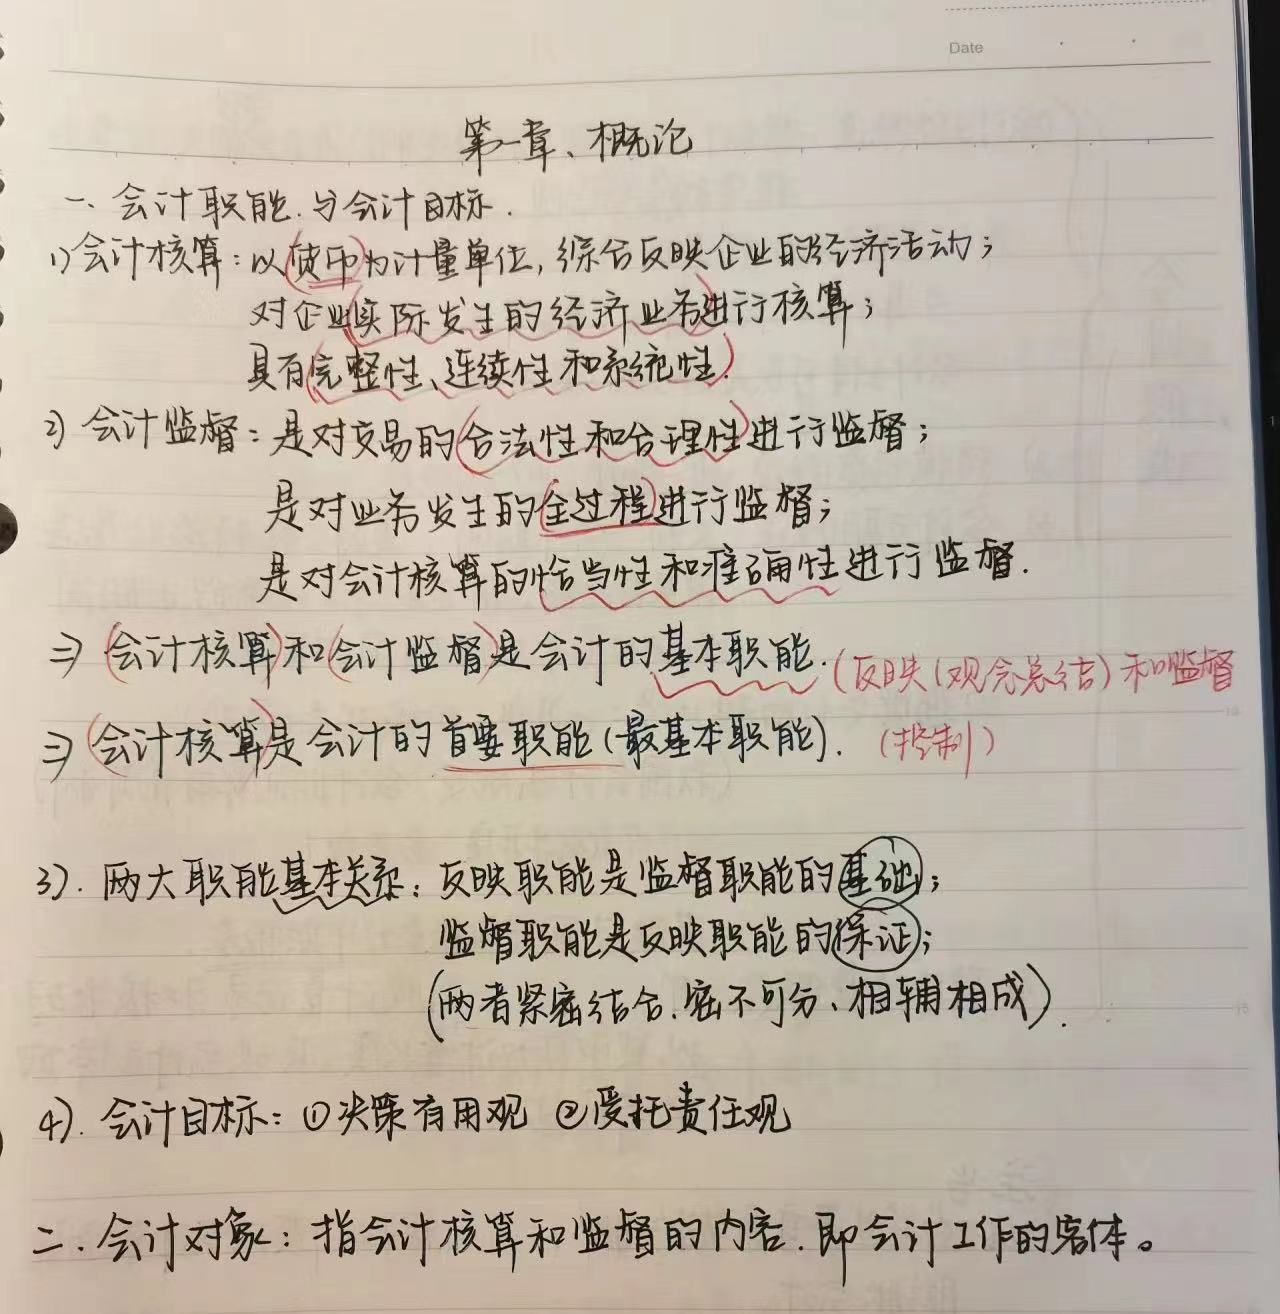 Date
第一章、概论
一、会计职能与会计目标.
1)会计核算:以(货币)为计量单位,综合反映企业的经济活动;
对企业(实际发生的经济业务)进行核算;
具有(完整性、连续性和系统性).
2) 会计监督:是对交易的(合法性和合理性)进行监督;
是对业务发生的(全过程)进行监督;
是对会计核算的恰当性和准确性进行监督.
⇒ (会计核算)和(会计监督)是会计的基本职能.(反映(观念总结)和监督
⇒ (会计核算)是会计的首要职能(最基本职能). (控制)
3). 两大职能基本关系:反映职能是监督职能的基础;
监督职能是反映职能的保证;
(两者紧密结合、密不可分、相辅相成).
4). 会计目标:①决策有用观 ②受托责任观
二.会计对象:指会计核算和监督的内容.即会计工作的客体。